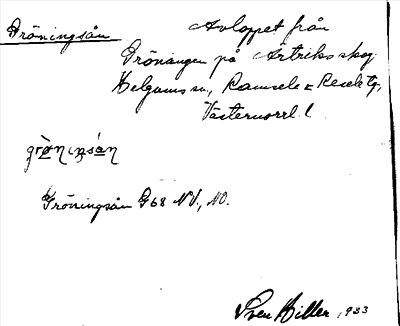 Gröningsån
Avloppet från
Gröningen på Ärtriks skog,
Helgums sn., Ramsele & Resele tg.,
Västernorrl. l.
grö̀nıŋsá̄n
Gröningsån G68 NV., NO.
Sven Hiller, 1933